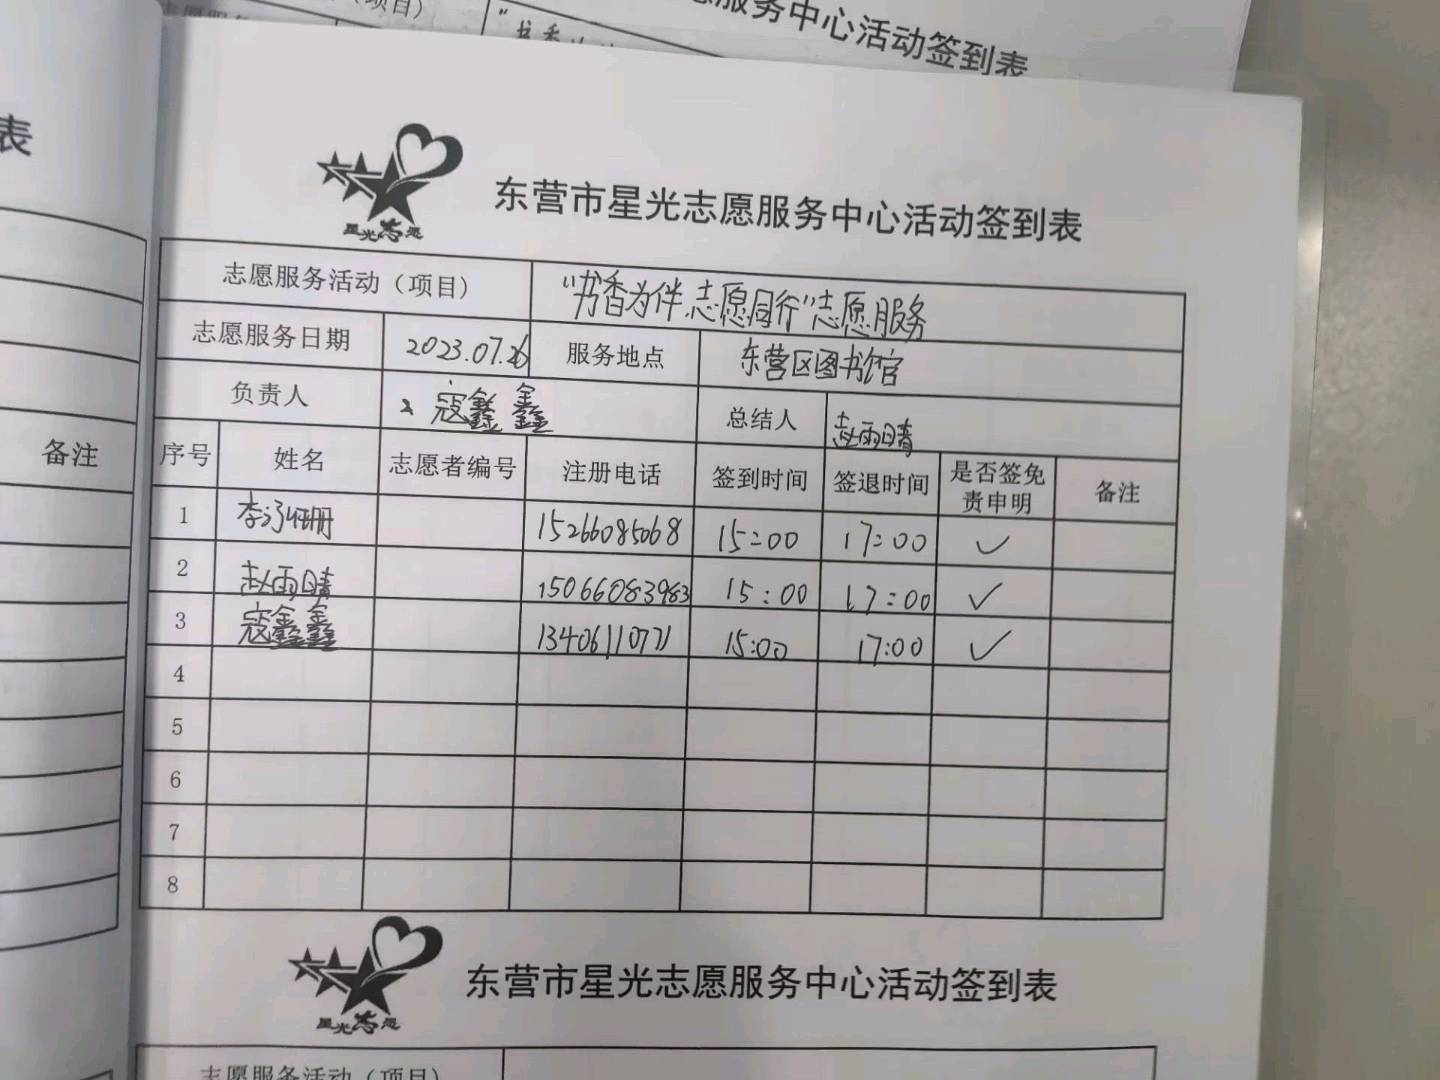 (项目)
"书香
志愿服务中心活动签到表
表
备注
星光志愿
东营市星光志愿服务中心活动签到表
志愿服务活动（项目） "书香为伴,志愿同行"志愿服务
志愿服务日期 2023.07.26 服务地点 东营区图书馆
负责人 寇鑫鑫 总结人 赵雨晴
序号 姓名 志愿者编号 注册电话 签到时间 签退时间 是否签免责申明 备注
1 15266085068 15:00 17:00 ✓
2 赵雨晴 15066083983 15:00 17:00 ✓
3 寇鑫鑫 13406110771 15:00 17:00 ✓
4
5
6
7
8
星光志愿
东营市星光志愿服务中心活动签到表
志愿服务活动（项目）